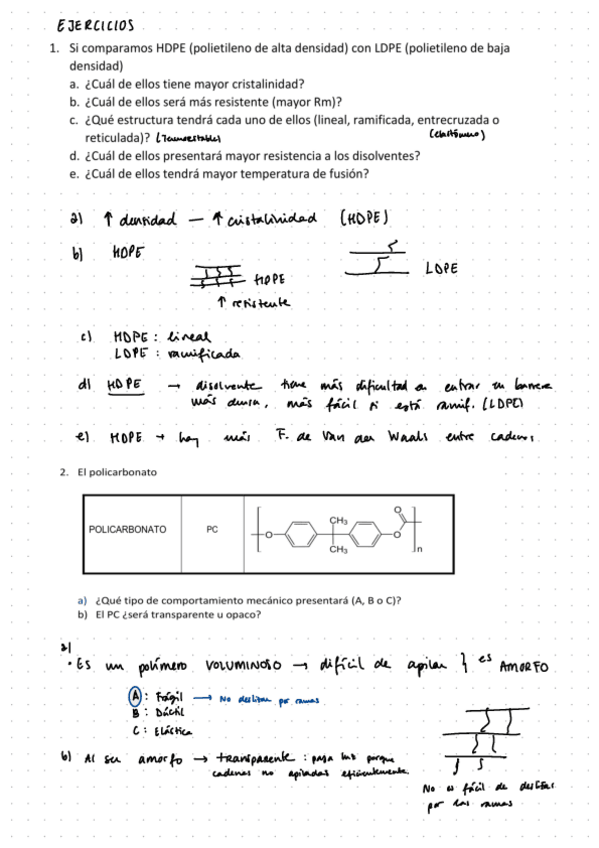 EJERCICIOS
1. Si comparamos HDPE (polietileno de alta densidad) con LDPE (polietileno de baja
densidad)
a. ¿Cuál de ellos tiene mayor cristalinidad?
b. ¿Cuál de ellos será más resistente (mayor Rm)?
c. ¿Qué estructura tendrá cada uno de ellos (lineal, ramificada, entrecruzada o
reticulada)? (Termoestables) (elastómero)
d. ¿Cuál de ellos presentará mayor resistencia a los disolventes?
e. ¿Cuál de ellos tendrá mayor temperatura de fusión?
a) ↑ densidad — ↑ cristalinidad (HDPE)
b) HDPE
HDPE
LDPE
↑ resistente
c) HDPE : lineal
LDPE : ramificada
d) HDPE → disolvente tiene más dificultad en entrar en barrera
más densa, más fácil si está ramif. (LDPE)
e) HDPE → hay más F. de Van der Waals entre cadenas
2. El policarbonato
POLICARBONATO PC
O CH3 CH3 O O n
a) ¿Qué tipo de comportamiento mecánico presentará (A, B o C)?
b) El PC ¿será transparente u opaco?
a)
• Es un polímero VOLUMINOSO → difícil de apilar } es AMORFO
A : Frágil → No deslizan por ramas
B : Dúctil
C : Elástica
b) Al ser amorfo → transparente : pasa luz porque
cadenas no apiladas eficientemente.
No es fácil de deslizar
por las ramas